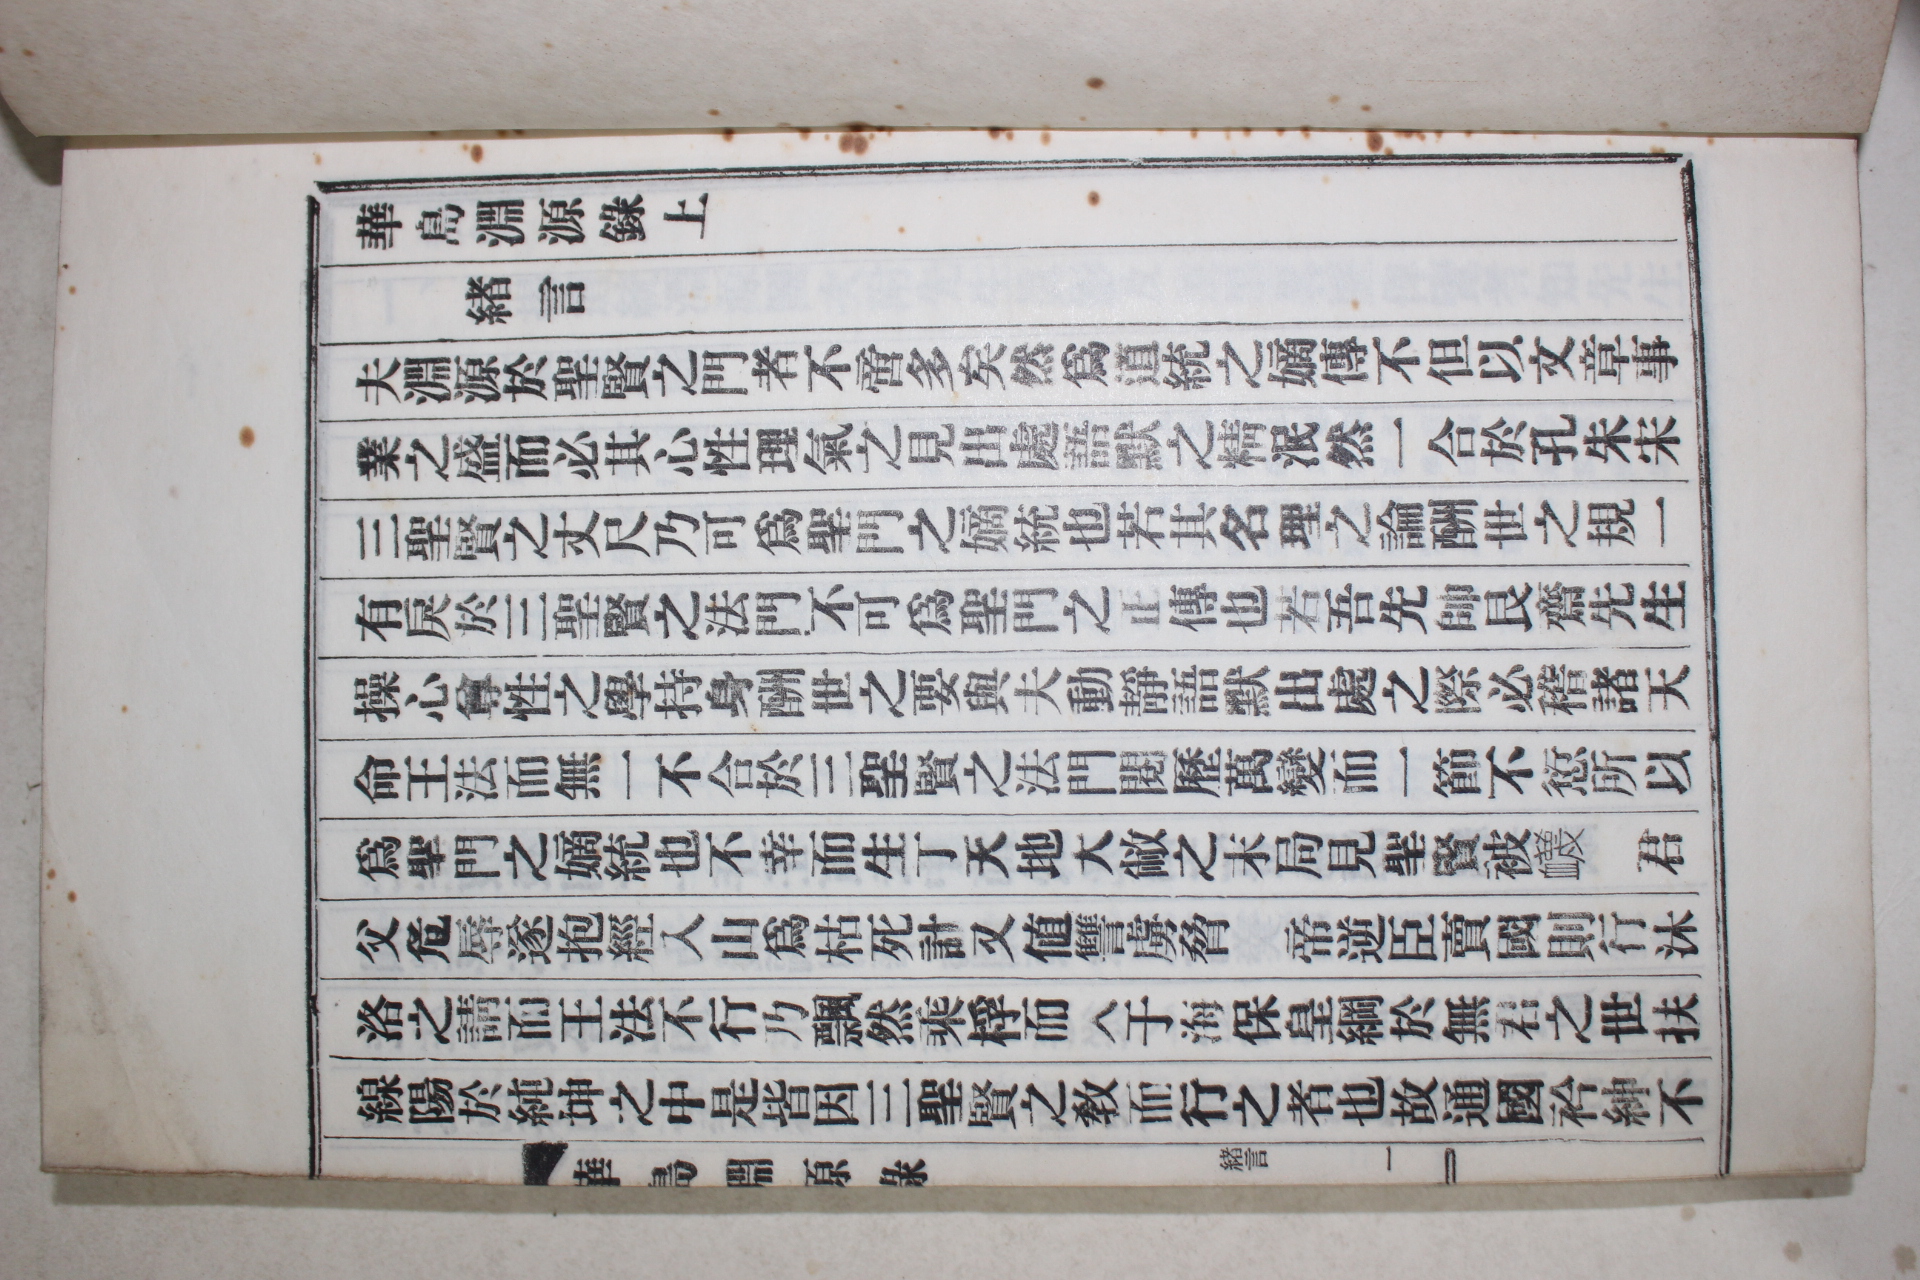 華島淵源錄上
緖言
夫淵源於聖賢之門者不啻多矣然爲道統之嫡傳不但以文章事
業之盛而必其心性理氣之見出處語默之精泯然一合於孔朱宋
三聖賢之丈尺乃可爲聖門之嫡統也若其名理之論酬世之規一
有戾於三聖賢之法門不可爲聖門之正傳也若吾先師艮齋先生
操心尊性之學持身酬世之要與夫動靜語默出處之際必稽諸天
命王法而無一不合於三聖賢之法門閱歷萬變而一節不愆所以
爲聖門之嫡統也不幸而生丁天地大敝之末局見聖賢被衊 君
父危辱遂抱經入山爲枯死計又値讐虜脅 帝逆臣賣國則行沐
洛之請而王法不行乃飄然乘桴而入于海保皇綱於無君之世扶
線陽於純坤之中是皆因三聖賢之敎而行之者也故通國衿紳不
華島淵源錄
緖言
一